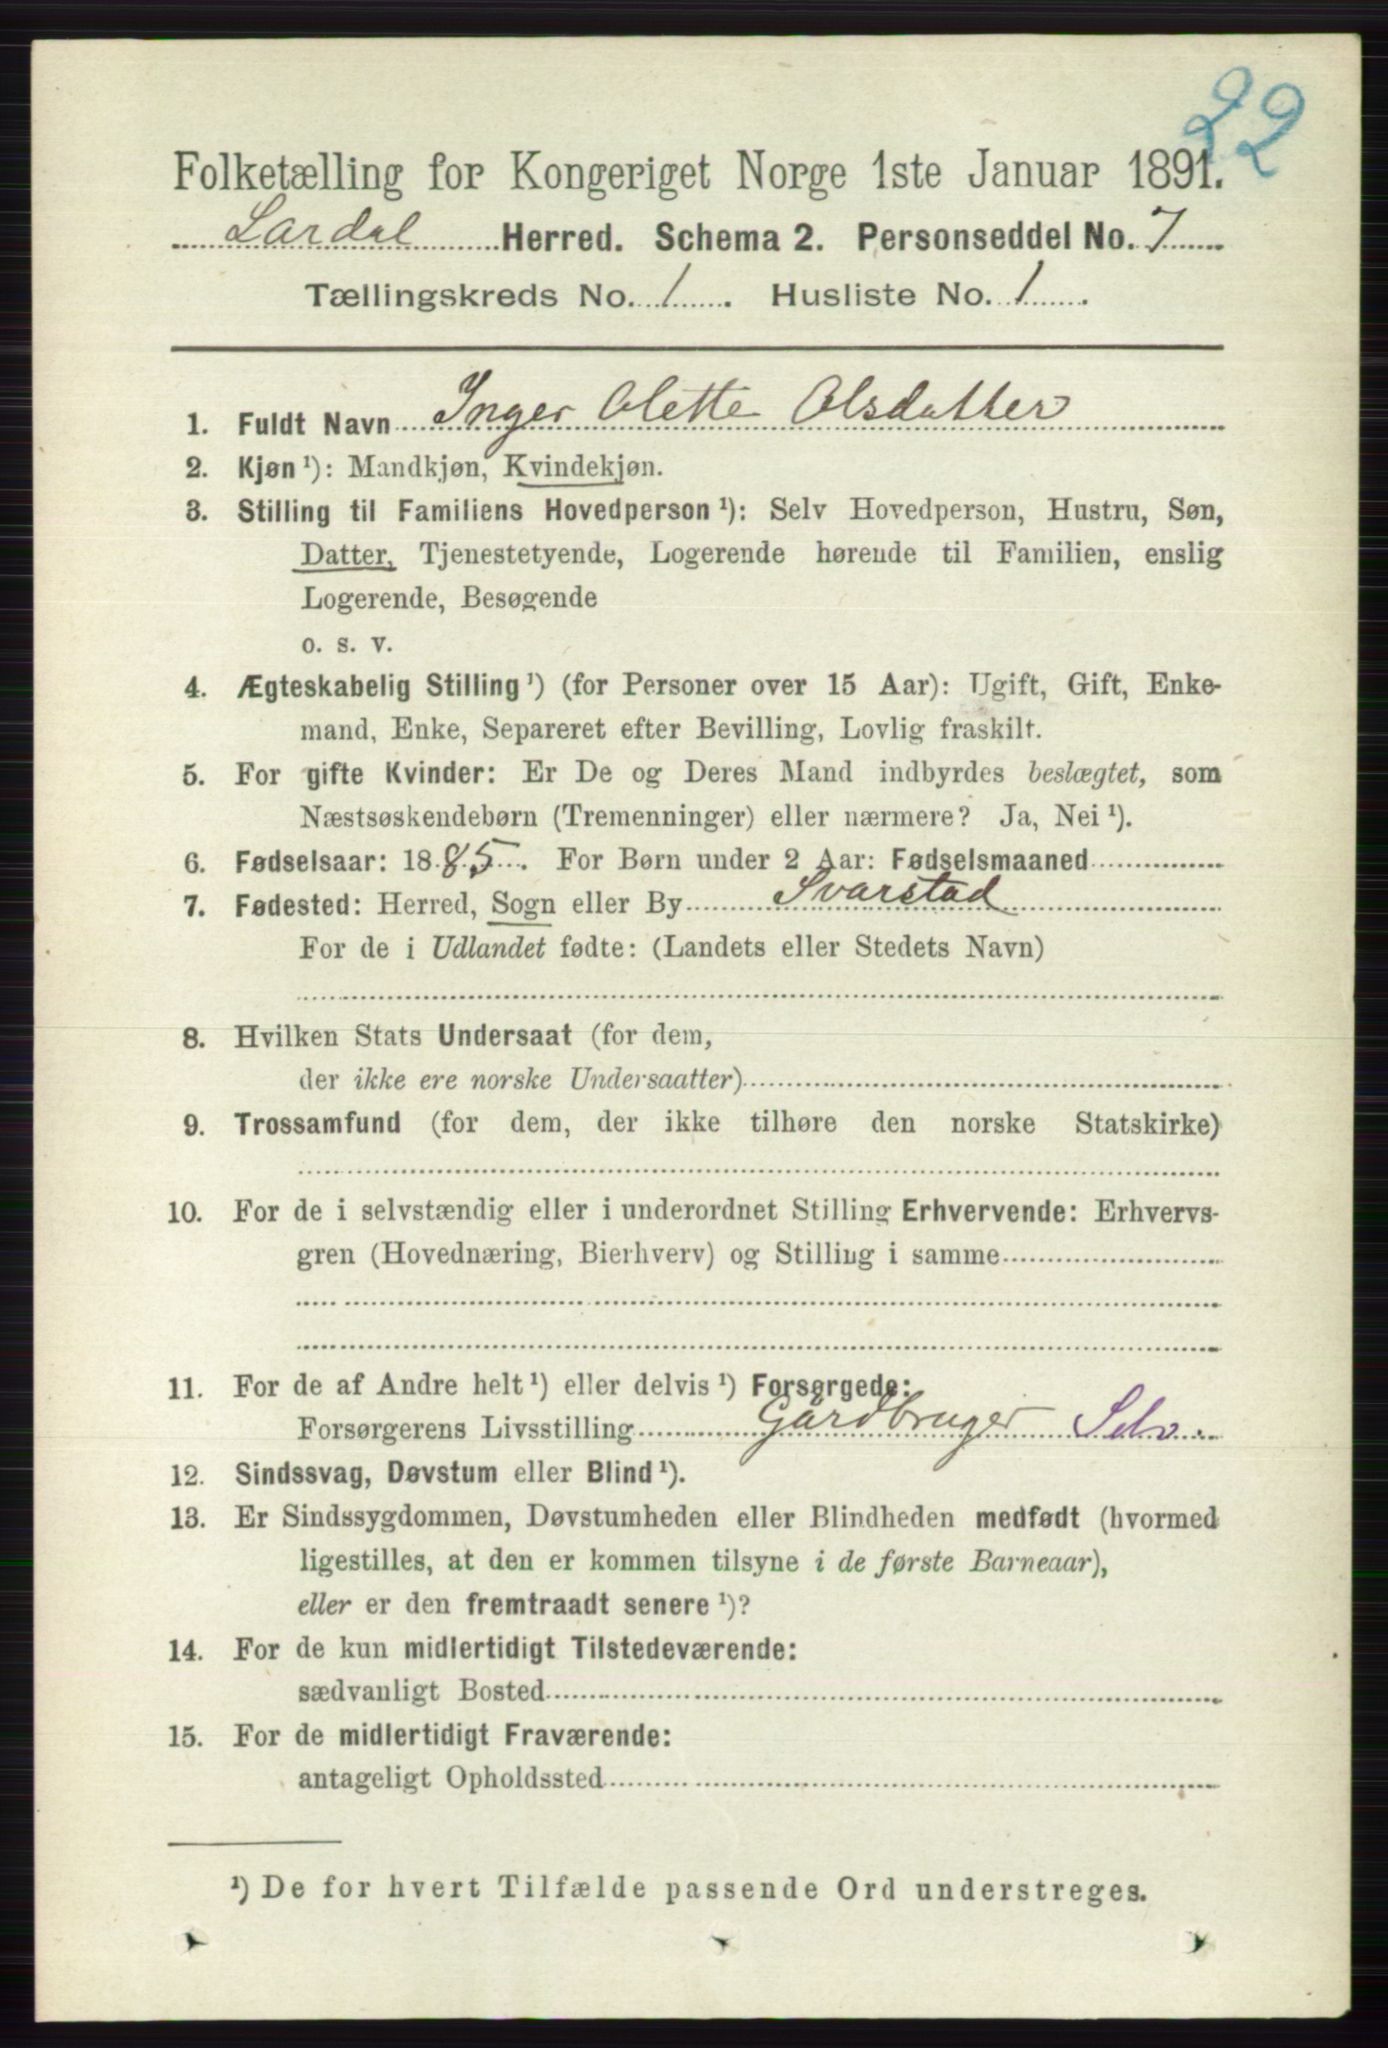 22
Folketælling for Kongeriget Norge 1ste Januar 1891.
Lardal Herred. Schema 2. Personseddel No. 7
Tællingskreds No. 1. Husliste No. 1.
1. Fuldt Navn Inger Olette Olsdatter
2. Kjøn ¹): Mandkjøn, Kvindekjøn.
3. Stilling til Familiens Hovedperson ¹): Selv Hovedperson, Hustru, Søn,
Datter, Tjenestetyende, Logerende hørende til Familien, enslig
Logerende, Besøgende
o. s. v.
4. Ægteskabelig Stilling ¹) (for Personer over 15 Aar): Ugift, Gift, Enke-
mand, Enke, Separeret efter Bevilling, Lovlig fraskilt.
5. For gifte Kvinder: Er De og Deres Mand indbyrdes beslægtet, som
Næstsøskendebørn (Tremenninger) eller nærmere? Ja, Nei ¹).
6. Fødselsaar: 1885. For Børn under 2 Aar: Fødselsmaaned
7. Fødested: Herred, Sogn eller By Svarstad
For de i Udlandet fødte: (Landets eller Stedets Navn)
8. Hvilken Stats Undersaat (for dem,
der ikke ere norske Undersaatter)
9. Trossamfund (for dem, der ikke tilhøre den norske Statskirke)
10. For de i selvstændig eller i underordnet Stilling Erhvervende: Erhvervs-
gren (Hovednæring, Bierhverv) og Stilling i samme
11. For de af Andre helt ¹) eller delvis ¹) Forsørgede:
Forsørgerens Livsstilling Gårdbruger Selv.
12. Sindssvag, Døvstum eller Blind ¹).
13. Er Sindssygdommen, Døvstumheden eller Blindheden medfødt (hvormed
ligestilles, at den er kommen tilsyne i de første Barneaar),
eller er den fremtraadt senere ¹)?
14. For de kun midlertidigt Tilstedeværende:
sædvanligt Bosted
15. For de midlertidigt Fraværende:
antageligt Opholdssted
¹) De for hvert Tilfælde passende Ord understreges.